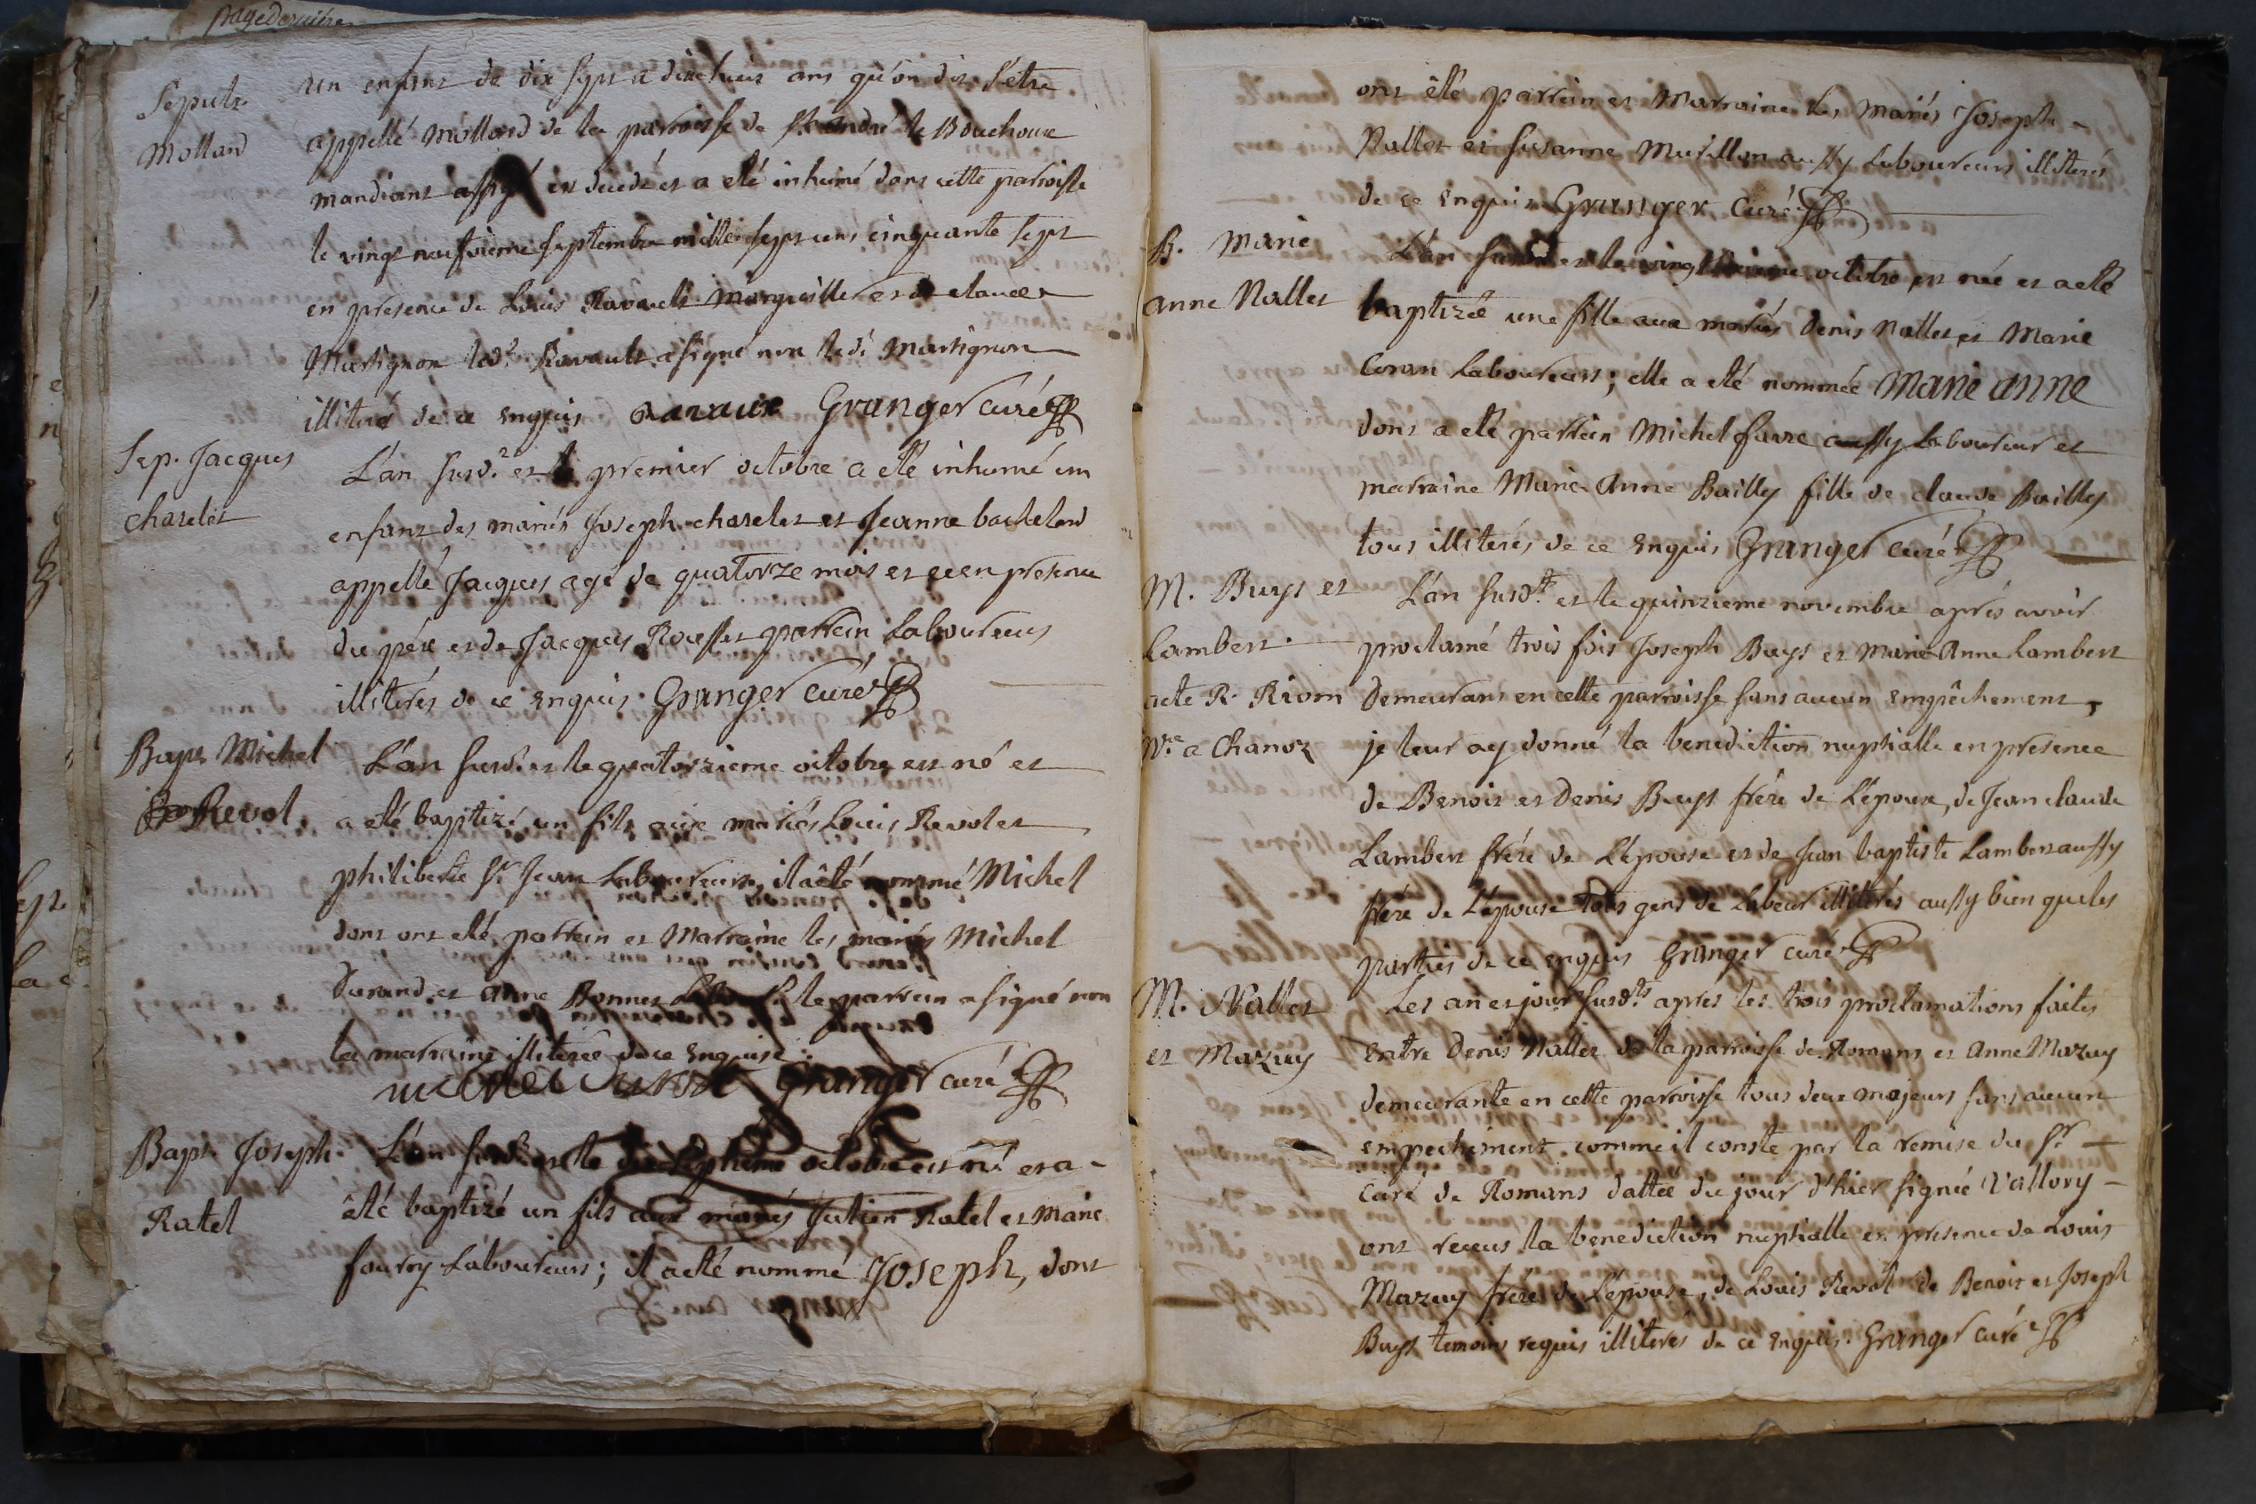 page dernière
Sepult.
Mollard
un enfant de dix sept a dix huit ans qu'on dit s'être
appellé Mollard de la parroisse de St andré le Bouchoux
mandiant est decedé et a eté inhumé dans cette parroisse
le vingt neufvieme septembre mille sept cens cinquante sept
en presence de Louis Ravault Marguillier et de claude
Martignon led.t Ravault a signé non led.t Martignon
illiteré de ce enquis Ravaux Granger curé
Sep. Jacques
charelet
L'an susd.t et le premier octobre a eté inhumé un
enfant des mariés Joseph charelet et Jeanne bachelard
appellé Jacques agé de quatorze mois et ce en presence
du pére et de Jacques parrein Laboureurs
illiterés de ce enquis. Granger curé
Bapt. Michel
Revol
L'an susd.t et le quatorzieme octobre est né et
a eté baptizé un fils aux mariés Louis Revol et
philiberte St Jean Laboureurs, il a êté nommé Michel
dont ont eté parrein et Marraine les mariés Michel
Durand et Anne Bonnet le parrein a signé non
la marraine illiterée de ce enquise
michel durand Granger curé
Bapt. Joseph
Ratel
L'an susd.t et le dix septieme octobre est né et a
êté baptizé un fils aux mariés Julien Ratel et Marie
fourny Laboureurs; il a eté nommé Joseph, dont
ont êté parrein et Marraine les mariés Joseph
Nallet et Susanne Murillon aussy Laboureurs illiterés
de ce enquis Granger Curé
B. Marie
anne Nallet
L'an susd.t et le vingt octobre est née et a eté
baptizée une fille aux mariés Denis Nallet et Marie
Coran Laboureurs; elle a eté nommée Marie anne
dont a eté parrein Michel favre aussy Laboureur et
marraine Marie Anne Bailly fille de claude Bailly
tous illiterés de ce enquis Granger curé
M. Buys et
Lambert
acte R. Riom
N.re a Chanoz
L'an susd.t et le quinzieme novembre aprés avoir
proclamé trois fois Joseph Buys et Marie Anne Lambert
Demeurans en cette parroisse sans aucun empêchement,
je leur ay donné la benediction nuptialle en presence
de Benoit et Denis Buys frére de L'époux, de Jean claude
Lambert frére de L'épouse et de Jean baptiste Lambert aussy
frére de L'épouse tous gens de Labeur illiterés aussy bien que les
parties de ce enquis Granger curé
M. Nallet
et Mazuy
Les an et jour susd.ts aprés les trois proclamations faites
entre Denis Nallet de la parroisse de Romans et Anne Mazuy
demeurante en cette parroisse tous deux majeurs sans aucun
empechement comme il conste par la remise du Sr
curé de Romans dattée du jour d'hier signée Vallory
ont receus la benediction nuptialle en presence de Louis
Mazuy frére de L'épouse, de Louis Revol de Benoit et Joseph
Buys temoins requis illiterés de ce enquis. Granger curé